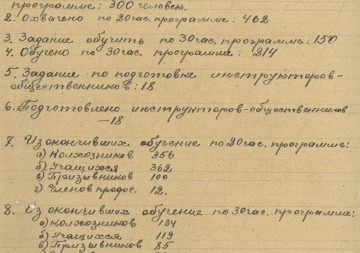 программе: 300 человек.
2. Охвачено по 20 час. программе: 462
3. Задание обучить по 30 час. программе: 150
4. Обучено по 30 час. программе: 214
5. Задание по подготовке инструкторов-
общественников: 18
6. Подготовлено инструкторов-общественников
—18
7. Из окончивших обучение по 20 час. программе:
а) Колхозников 356
б) Учащихся 362
в) Призывников 100
г) Членов профос. 12.
8. Из окончивших обучение по 30 час. программе:
а) Колхозников 134
б) Учащихся 119
в) Призывников 85